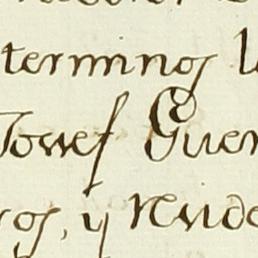 terminos l
Jossef Guer
ros, y rende